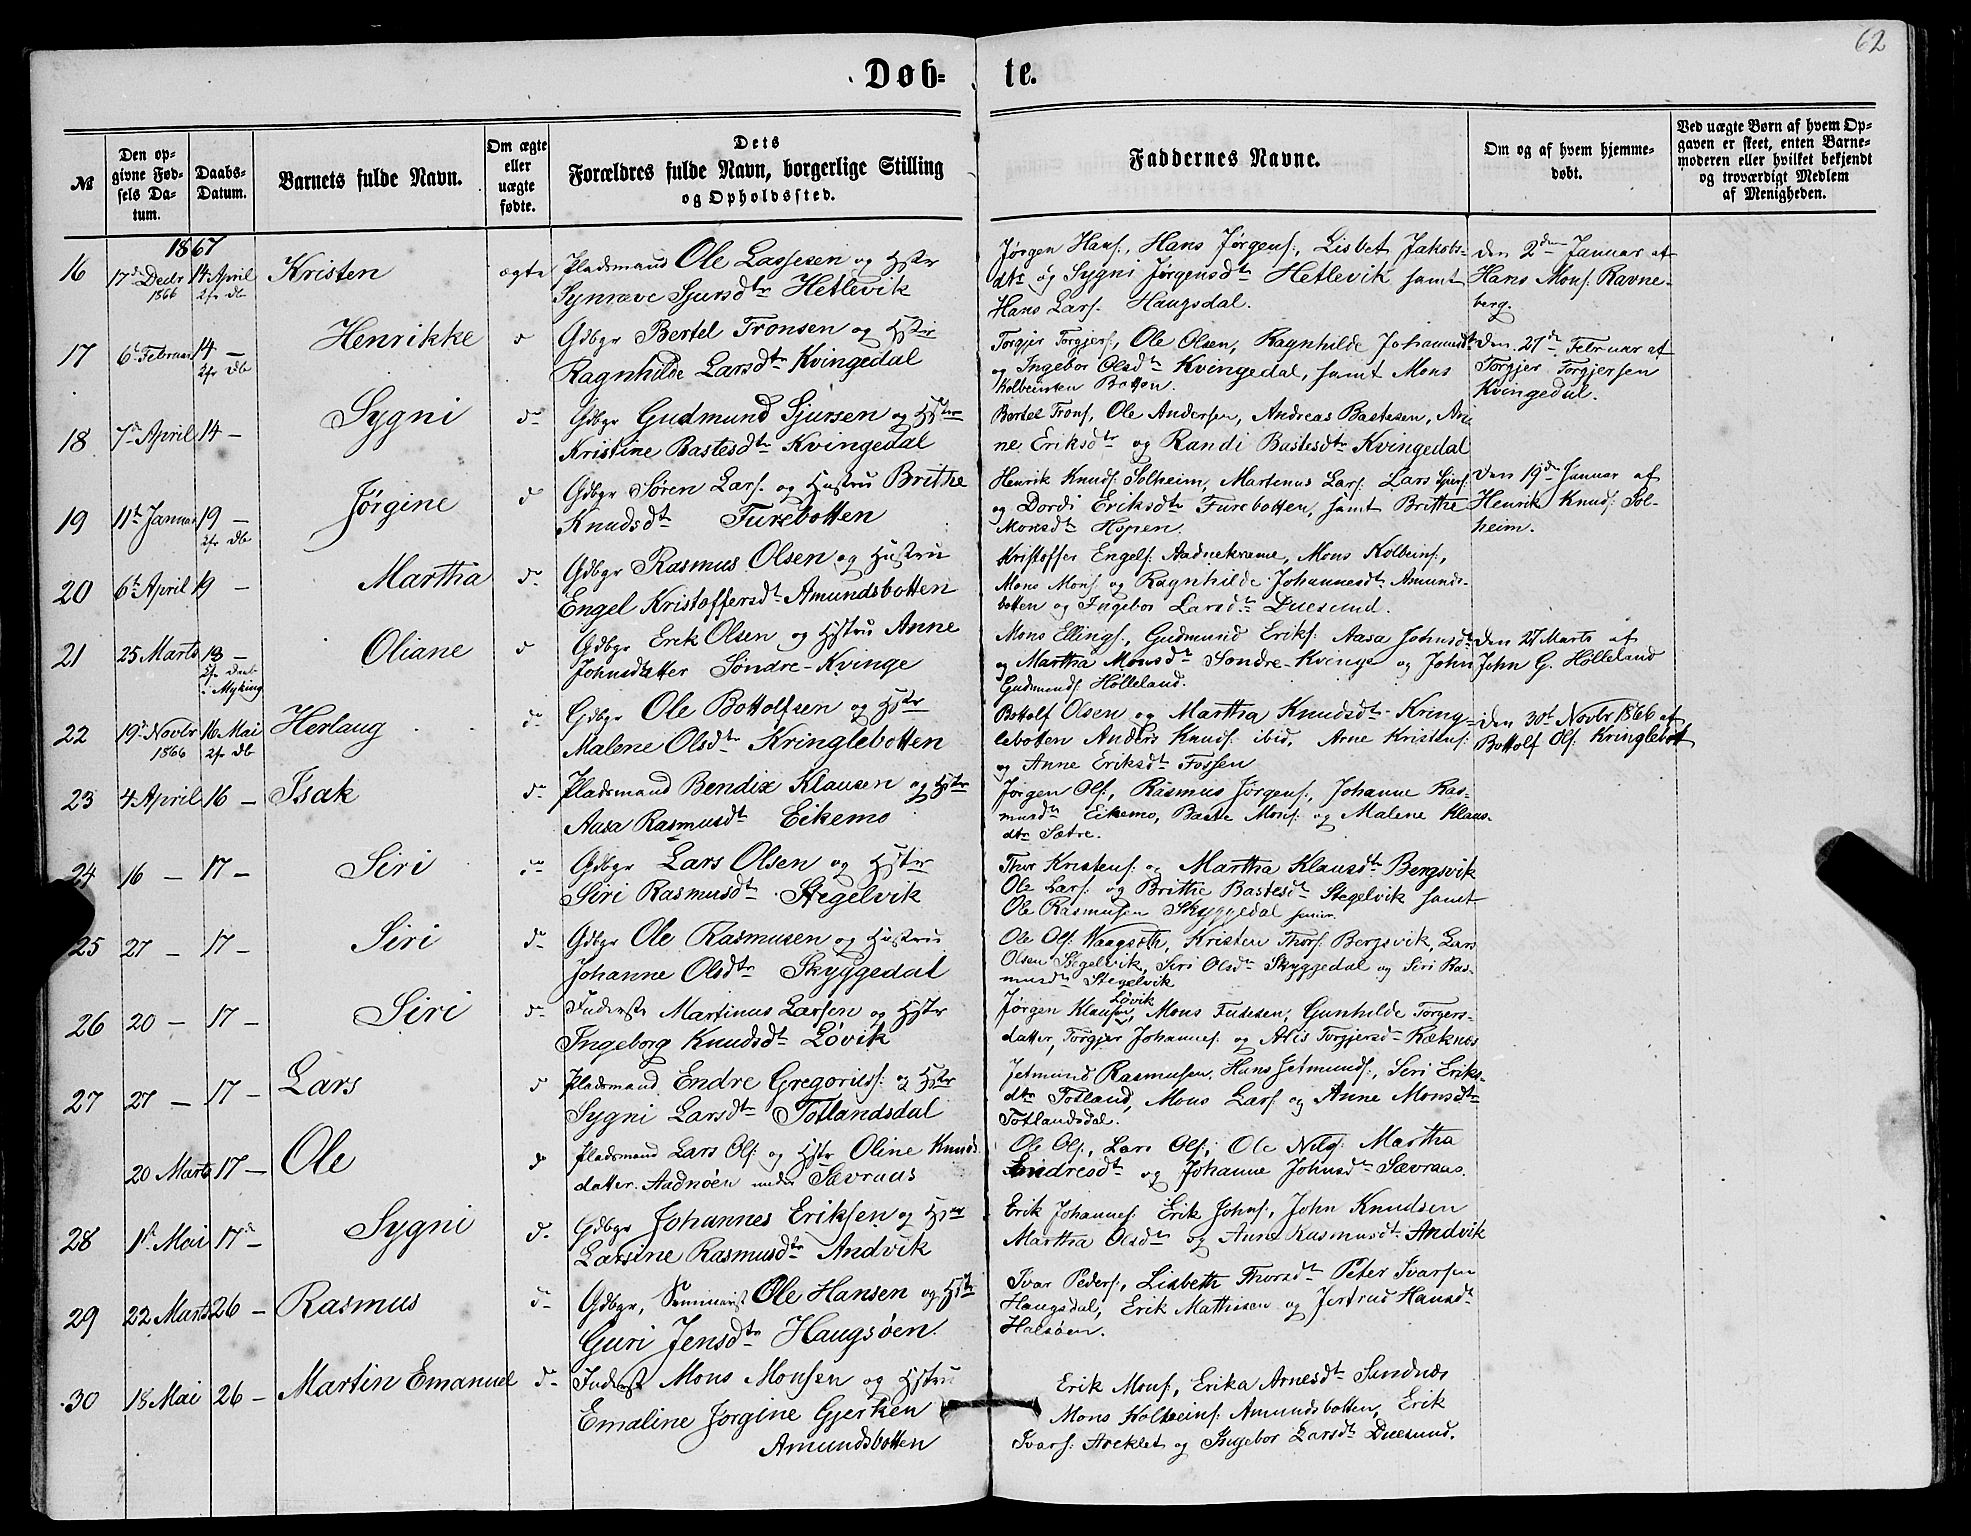 62
Døb-
te.
№
Den op-
givne Fød-
sels Da-
tum.
Daabs-
Datum.
Barnets fulde Navn.
Om ægte
eller
uægte
fødte.
Dets
Forældres fulde Navn, borgerlige Stilling
og Opholdssted.
Faddernes Navne.
Om og af hvem hjemme-
døbt.
Ved uægte Børn af hvem Op-
gaven er skeet, enten Barne-
moderen eller hvilket bekjendt
og troværdigt Medlem
af Menigheden.
1867
16 17de Decbr 1866 14 April Kristen ægte Pladsmand Ole Lassesen og Hstr
Synneve Sjursdtr Hetlevik
Jørgen Hans:, Hans Jørgens:, Lisbet Jakobs-
dtr og Sygni Jørgensdtr Hetlevik samt
Hans Lars: Haugsdal.
den 2den Januar af
Hans Mons: Ravne-
berg.
17 6t Februar 14 — Henrikke d Gdbgr Bertel Tronsen og Hstr
Ragnhilde Larsdtr Kvingedal
Torgjer Torgjers:, Ole Olsen, Ragnhilde Johannesdt:
og Ingebor Olsdtr Kvingedal, samt Mons
Kolbeinsen Botten.
den 21de Februar af
Torgjer Torgjersen
Kvingedal.
18 7de April 14 — Sygni do Gdbgr Gudmund Sjursen og Hstr
Kristine Bastesdtr Kvingedal
Bertel Trons:, Ole Andersen, Andreas Bastesen, Ari
ne Eriksdtr og Randi Bastesdtr Kvingedal
19 11t Januar 19 — Jørgine d Gdbgr Søren Lars: og Hustru Brithe
Knudsdtr Furebotten
Henrik Knuds: Solheim, Martinus Lars: Lars Sjurs:
og Dordi Eriksdtr Furebotten, samt Brithe
Monsdtr Hopen.
den 19de Januar af
Henrik Knuds: Sol-
heim.
20 6t April 19 — Martha do Gdbgr Rasmus Olsen og Hustru
Engel Kristoffersdtr Amundsbotten
Kristoffer Engels: Aadnekvame, Mons Kolbeins:,
Mons Mons: og Ragnhilde Johannesdtr Amunds-
botten og Ingebor Larsdtr Duesund.
21 25 Marts 13 — Oliane d Gdbgr Erik Olsen og Hstru Anne
Johnsdatter Søndre-Kvinge
i Myking
Mons Ellings:, Gudmund Eriks: Aasa Johnsdtr
og Martha Monsdtr Søndre-Kvinge og John
Gudmunds: Hølleland.
den 27 Marts af
John G. Hølleland
22 19de Novbr 1866 16 Mai Herlaug do Gdbgr Ole Bottolfsen og Hstr
Malene Olsdtr Kringlebotten
Bottolf Olsen og Martha Knudsdtr Kring-
lebotten Anders Knuds: ibid, Arne Kristens:
og Anne Eriksdtr Fossen
den 30t Novbr 1866 af
Bottolf Ols: Kringlebot
23 4 April 16 — Isak do Pladsmand Bendix Klausen og Hstr
Aasa Rasmusdtr Eikemo
Jørgen Ols:, Rasmus Jørgens:, Johanne Ras-
musdtr Eikemo, Baste Mons: og Malene Klaus-
dtr Sætre.
24 16 — 17 — Siri do Gdbgr Lars Olsen og Hstr
Siri Rasmusdtr Stegelvik
Thor Kristens: og Martha Klausdtr Bergsvik
Ole Lars: og Brithe Bastesdtr Stegelvik samt
Ole Rasmusen Skyggedal
25 27 — 17 — Siri do Gdbgr Ole Rasmusen og Hustru
Johanne Olsdtr Skyggedal
Ole Ols: Vaagseth, Kristen Thors: Bergsvik, Lars
Olsen Stegelvik, Siri Olsdtr Skyggedal og Siri Ras-
musdtr Stegelvik
26 20 — 17 — Siri do Inderst Martinus Larsen og Hstr
Ingeborg Knudsdtr Løvik
Jørgen Klausen Løvik, Mons Fusesen, Gunhilde Torgers-
datter, Torgjer Johannes: og Alis Torgjersd- Ræknes
27 27 — 17 — Lars d Pladsmand Endre Gregorius: og Hstr
Sygni Larsdtr Totlandsdal
Jetmund Rasmusen, Hans Jetmunds:, Siri Eriks-
dtr Totland, Mons Lars: og Anne Monsdtr
Totlandsdal.
20 Marts 17 — Ole do Pladsmand Lars Ols: og Hstr Oline Knuds
datter Aadnøen under Sævraas
Ole Ols:, Lars Ols:, Ole Nils:, Martha
Endresdtr og Johanne Johnsdtr Sævraas.
28 1st Mai 17de — Sygni d. Gdbgr Johannes Eriksen og Hstr
Larsine Rasmusdtr Andvik
Erik Johannes: Erik Johns:, John Knudsen
Martha Olsdtr og Anne Rasmusdtr Andvik
29 22 Marts 26 — Rasmus do Gdbgr, Seminarist Ole Hansen og Hstr
Guri Jensdtr Haugsøen.
Ivar Peders:, Lisbeth Thorsdtr Peter Ivarsen
Haugsdal, Erik Mathisen og Jertrud Hansdtr
Halsøen.
30 18 Mai 26 — Martin Emanuel do Inderst Mons Monsen og Hstru
Emaline Jørgine Gjerken
Amundsbotten
Erik Mons:, Erika Arnesdtr Sandnæs
Mons Kolbeins: Amundsbotten, Erik
Ivars: Areklet og Ingebor Larsdtr Duesund.